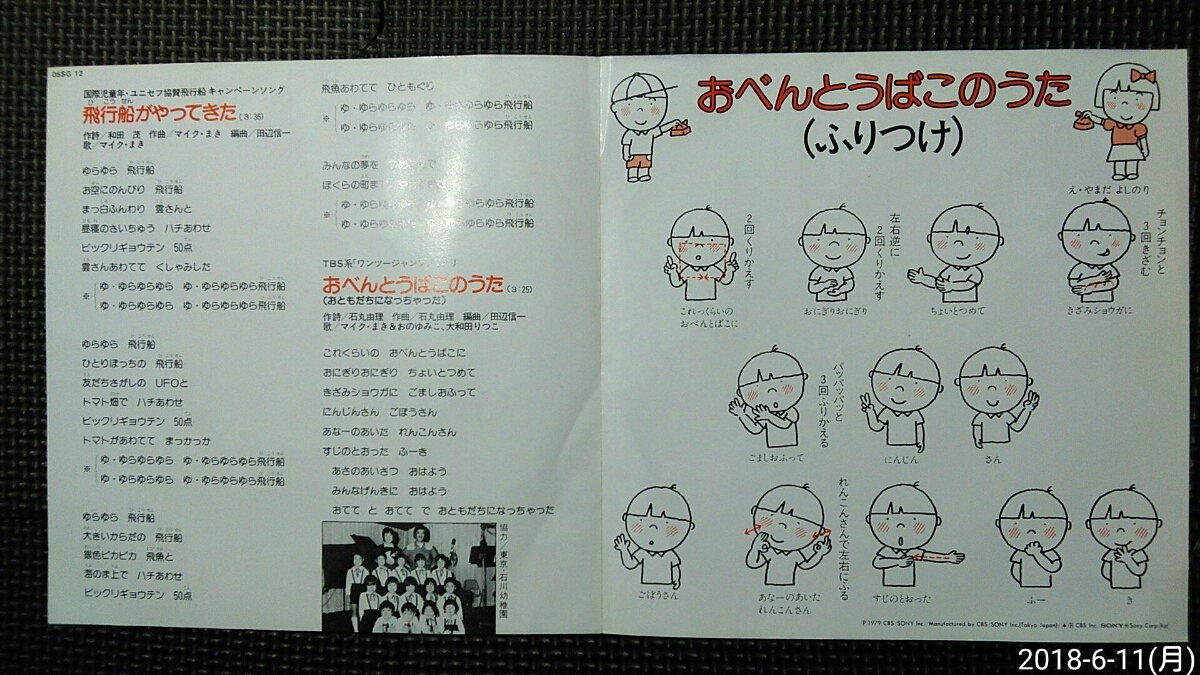 06SG 12
国際児童年・ユニセフ協賛飛行船 キャンペーンソング
飛行船がやってきた(3:36)
作詩/和田 茂 作曲/マイク・まき 編曲/田辺信一
歌/マイク・まき
ゆらゆら 飛行船
お空にのんびり 飛行船
まっ白ふんわり 雲さんと
昼寝のさいちゅう ハチあわせ
ビックリギョウテン 50点
雲さんあわてて くしゃみした
※ ゆ・ゆらゆらゆら ゆ・ゆらゆらゆら飛行船
ゆ・ゆらゆらゆら ゆ・ゆらゆらゆら飛行船
ゆらゆら 飛行船
ひとりぼっちの 飛行船
友だちさがしの UFOと
トマト畑で ハチあわせ
ビックリギョウテン 50点
トマトがあわてて まっかっか
※ ゆ・ゆらゆらゆら ゆ・ゆらゆらゆら飛行船
ゆ・ゆらゆらゆら ゆ・ゆらゆらゆら飛行船
ゆらゆら 飛行船
大きいからだの 飛行船
翠色ピカピカ 飛魚と
海のま上で ハチあわせ
ビックリギョウテン 50点
飛魚あわてて ひともぐり
※ ゆ・ゆらゆらゆら ゆ・ゆらゆらゆら飛行船
ゆ・ゆらゆら ゆらゆら飛行船
みんなの夢を で
ぼくらの町ま
※ ゆ・ゆらゆ ゆらゆら飛行船
ゆ・ゆらゆら ゆらゆら飛行船
TBS系「ワンツージャン
おべんとうばこのうた(3:25)
(おともだちになっちゃった)
作詩/石丸由理 作曲/石丸由理 編曲/田辺信一
歌/マイク・まき&おのゆみこ、大和田りつこ
これくらいの おべんとうばこに
おにぎりおにぎり ちょいとつめて
きざみショウガに ごましおふって
にんじんさん ごぼうさん
あなーのあいた れんこんさん
すじのとおった ふーき
あさのあいさつ おはよう
みんなげんきに おはよう
おてて と おてて で おともだちになっちゃった
協力/東京・石川幼稚園
おべんとうばこのうた
(ふりつけ)
え・やまだ よしのり
2回くりかえす
これっくらいの
おべんとばこに
おにぎりおにぎり
左右逆に
2回くりかえす
ちょいとつめて
チョンチョンと
3回きざむ
きざみショウガに
ごましおふって
パッパッパッと
3回ふりかえる
にんじん
さん
ごぼうさん
あなーのあいた
れんこんさん
れんこんさんで左右にふる
すじのとおった
ふー
き
P 1979 CBS/SONY Inc. Manufactured by CBS/SONY Inc.(Tokyo Japan)
2018-6-11(月)